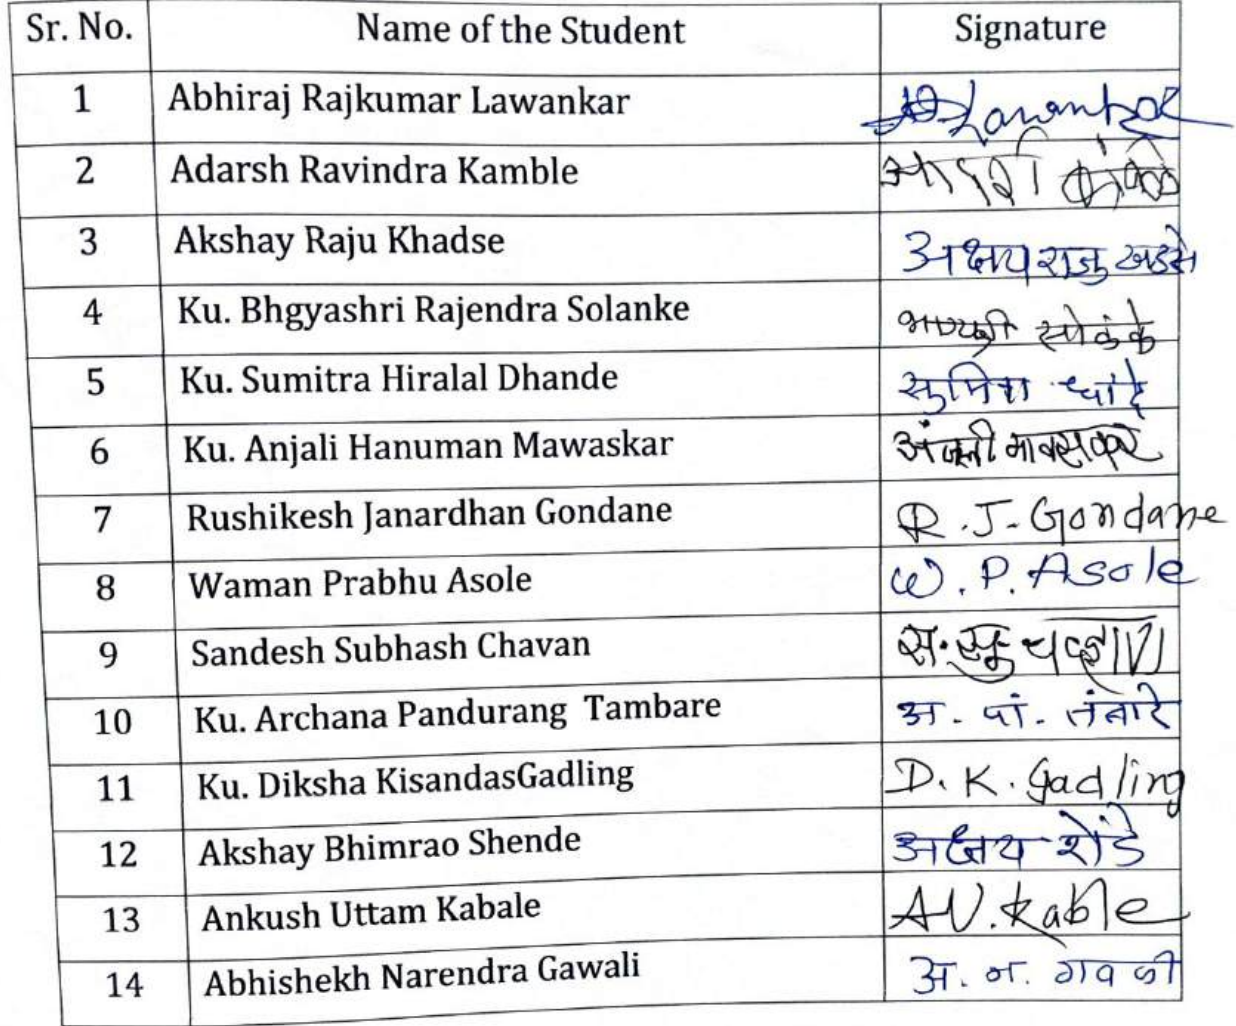 Sr. No. Name of the Student Signature
1 Abhiraj Rajkumar Lawankar Lawankar
2 Adarsh Ravindra Kamble आदर्श कांबळे
3 Akshay Raju Khadse अक्षय राजु खडसे
4 Ku. Bhgyashri Rajendra Solanke भाग्यश्री सोळंके
5 Ku. Sumitra Hiralal Dhande सुमित्रा धांदे
6 Ku. Anjali Hanuman Mawaskar अंजली मावसकर
7 Rushikesh Janardhan Gondane R. J. Gondane
8 Waman Prabhu Asole W. P. Asole
9 Sandesh Subhash Chavan स. सु. चव्हाण
10 Ku. Archana Pandurang Tambare अ. पां. तंबारे
11 Ku. Diksha KisandasGadling D. K. Gadling
12 Akshay Bhimrao Shende अक्षय शेंडे
13 Ankush Uttam Kabale A U. Kable
14 Abhishekh Narendra Gawali अ. न. गवळी